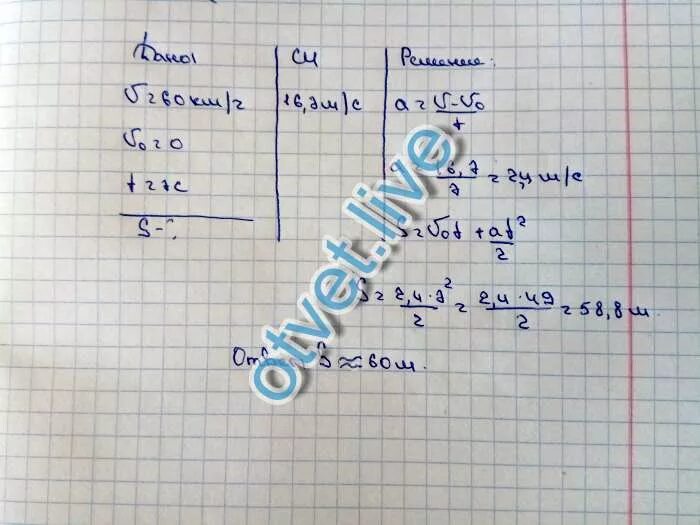 Дано: СИ Решение:
V = 60 км/ч 16,7 м/с a = V-V₀/t
V₀ = 0
t = 7с a = 16,7/7 = 2,4 м/с
S-?
S = V₀t + at²/2
S = 2,4·7²/2 = 2,4·49/2 = 58,8 м.
Ответ: S ≈ 60 м.
otvet.live